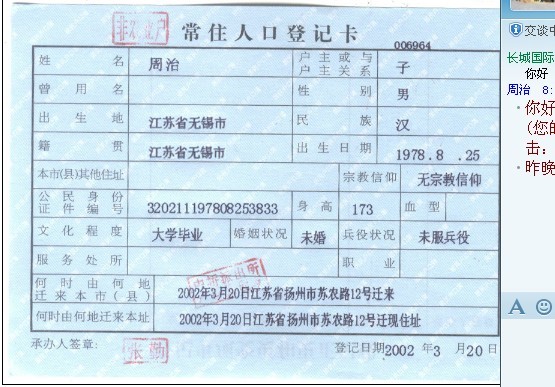 常住人口登记卡
006964
姓名 周治 户主或与户主关系 子
曾用名 性别 男
出生地 江苏省无锡市 民族 汉
籍贯 江苏省无锡市 出生日期 1978.8.25
本市(县)其他住址 宗教信仰 无宗教信仰
公民身份证件编号 320211197808253833 身高 173 血型
文化程度 大学毕业 婚姻状况 未婚 兵役状况 未服兵役
服务处所 职业
何时由何地迁来本市(县) 2002年3月20日江苏省扬州市苏农路12号迁来
何时由何地迁来本址 2002年3月20日江苏省扬州市苏农路12号迁现住址
承办人签章: 张勤 登记日期2002年3月20日
交谈中
长城国际
你好
周治 8:
你好
(您的
击:
昨晚
A